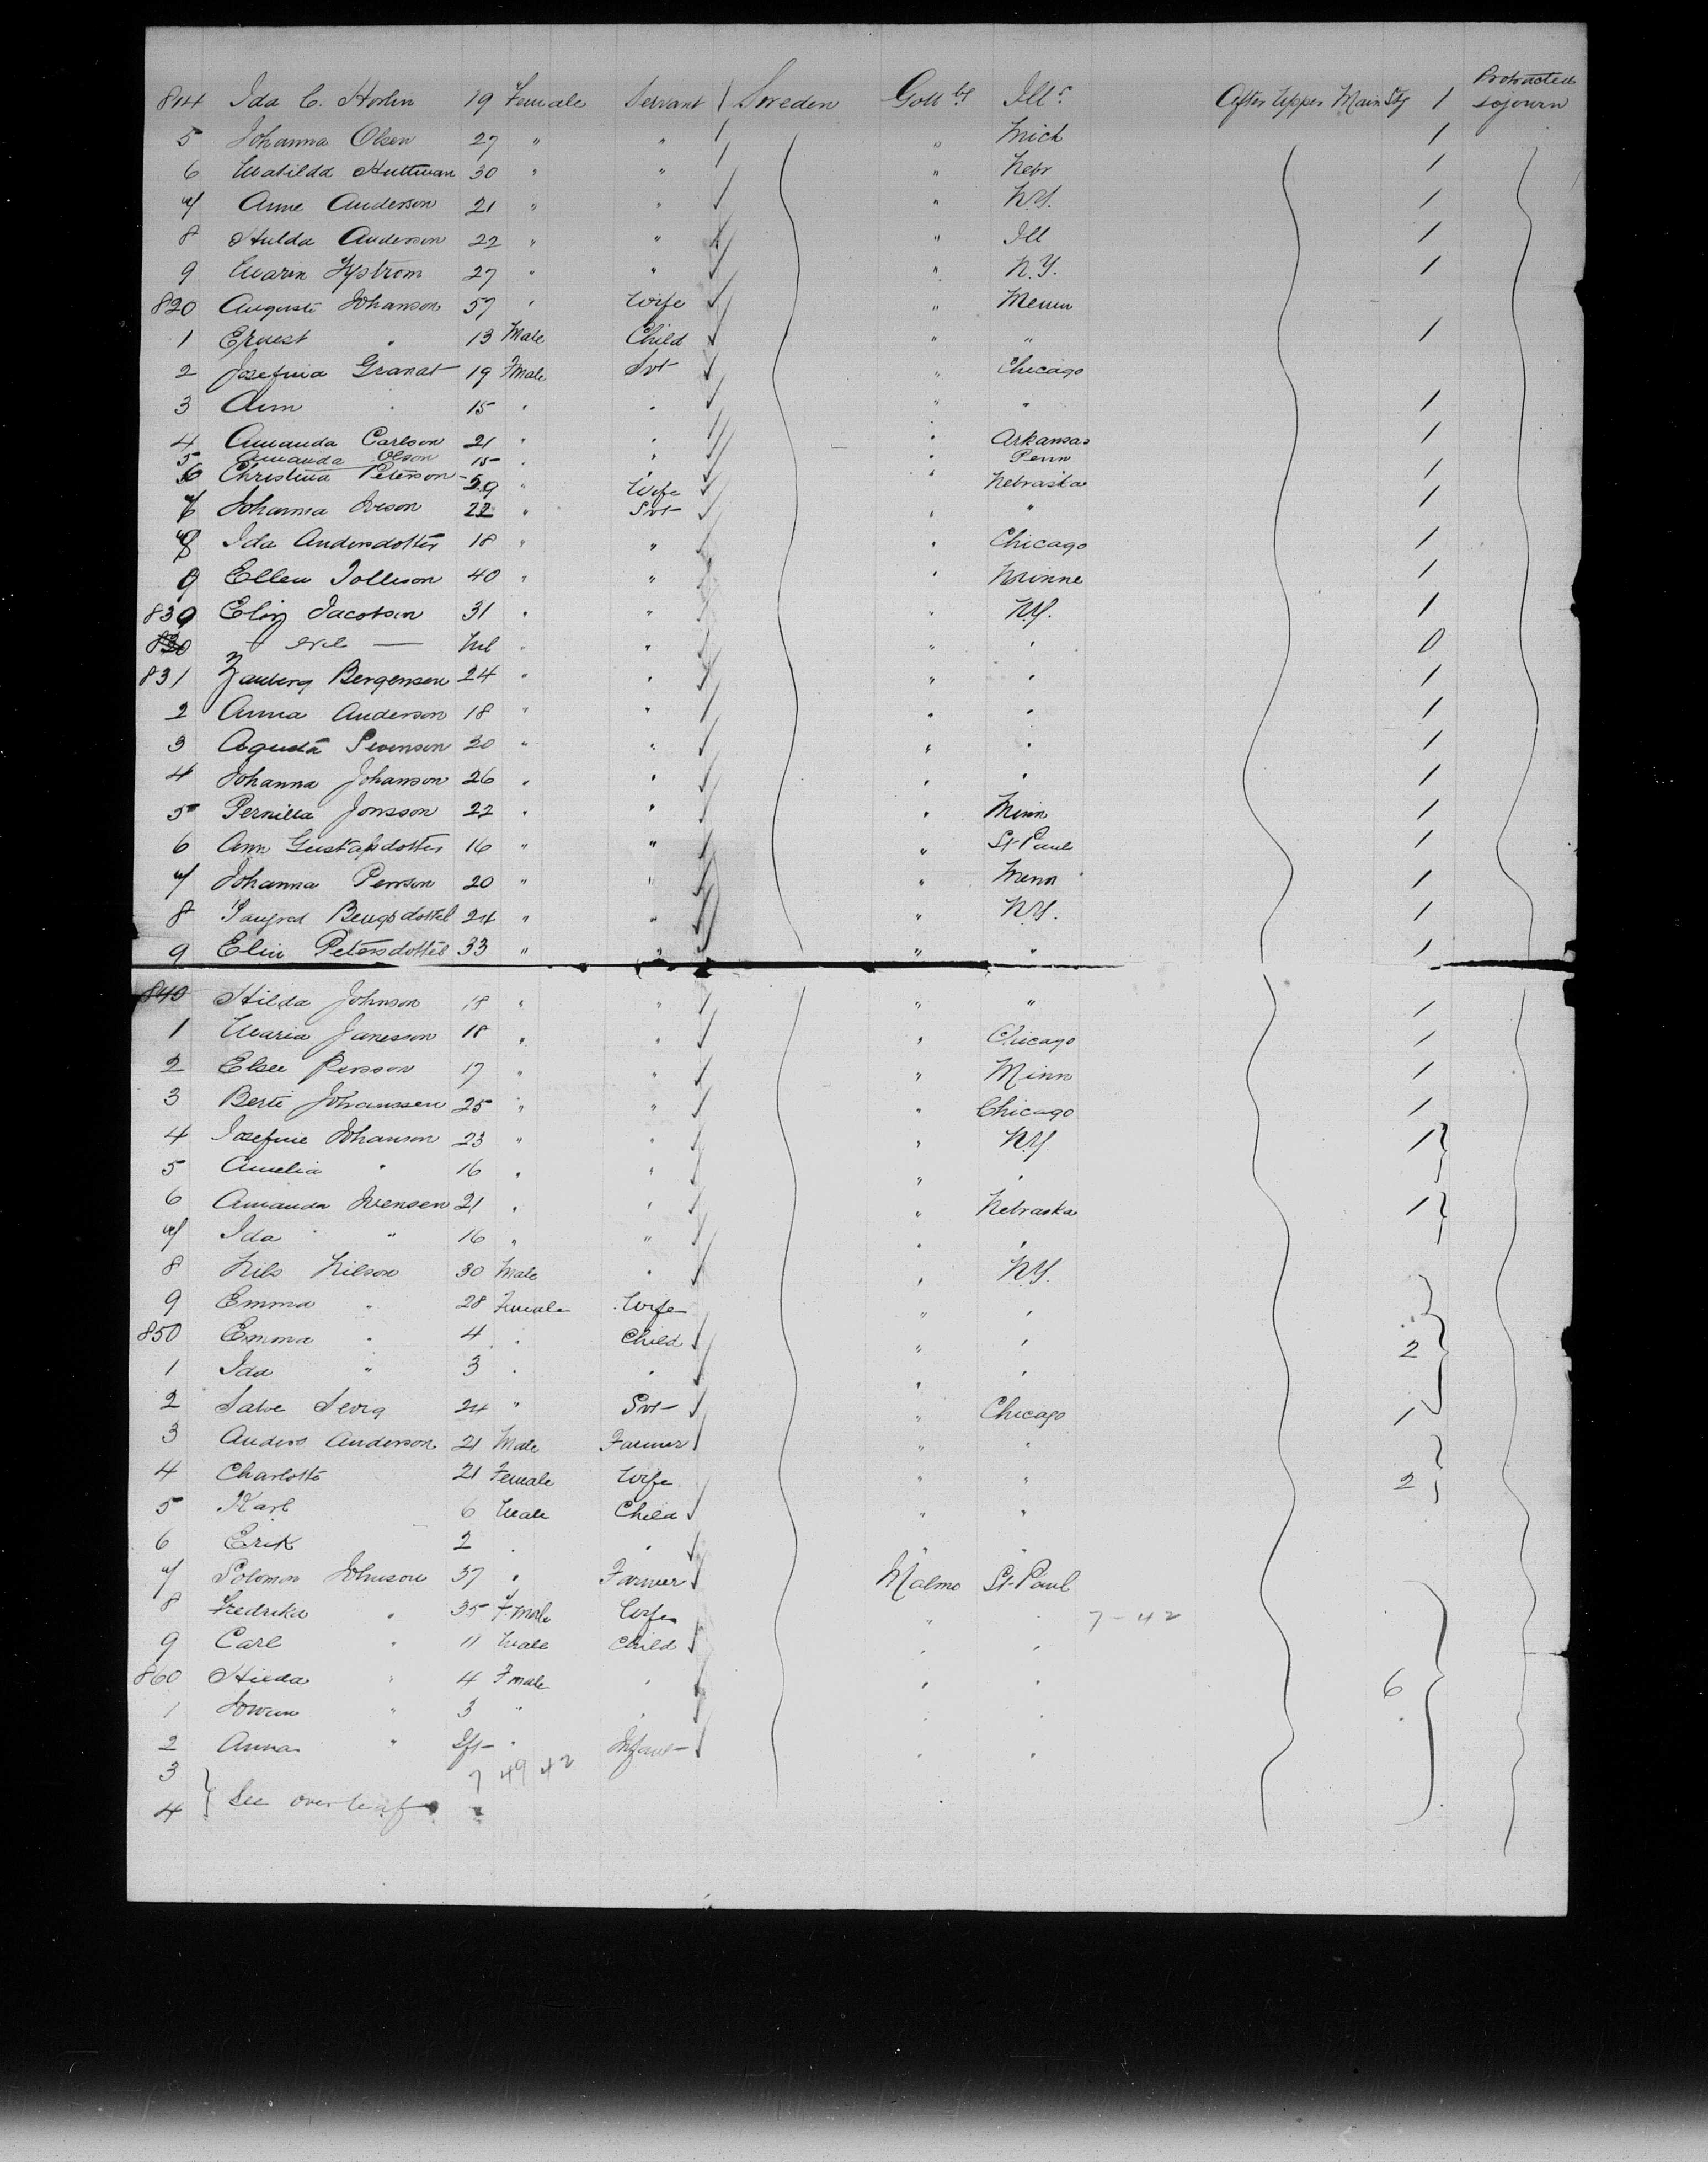 814 Ida C. Horlin 19 Female Servant 1 Sweden Gottbg Ills After Upper Main Stg 1 Protracted sojourn
5 Johanna Olsen 27 " " 1 " Mich 1
6 Matilda Hultman 30 " " 1 " Nebr 1
7 Anne Anderson 21 " " " N.Y. 1
8 Hulda Anderson 22 " " " Ill 1
9 Maren Systrom 27 " " " N.Y. 1
820 Auguste Johanson 57 " Wife "
1 Ernest " 13 Male Child " " 1
2 Josefina Granat 19 Fmale Svt " Chicago
3 Ann " 15 " " " " 1
4 Amanda Carlson 21 " " " Arkansas 1
5 Amanda Olson 15 " " " Penn
6 Christina Peterson 29 " Wife " Nebraska 1
7 Johanna 22 " Svt " " 1
8 Ida Andersdotter 18 " " " Chicago 1
9 Ellen 40 " " " Minne 1
830 Jacobsen 31 " " " N.Y. 1
830 — — " " " " 0
831 Bergensen 24 " " " " 1
2 Anna Anderson 18 " " " " 1
3 Agusta Svenson 20 " " " " 1
4 Johanna Johanson 26 " " " " 1
5 Pernilla Jonsson 22 " " " Minn 1
6 Ann Gustafsdotter 16 " " " St Paul 1
7 Johanna Person 20 " " " Minn 1
8 24 " " " N.Y. 1
9 Elin Petersdotter 33 " " " " 1
840 Hilda Johnson 18 " " " " 1
1 Maria Janesson 18 " " " Chicago 1
2 Elsee Persson 17 " " " Minn 1
3 Berte Johanssen 25 " " " Chicago 1
4 Josefine Johanson 23 " " " N.Y. 1
5 Amelia " 16 " " " "
6 Amanda Svensen 21 " " " Nebraska 1
7 Ida " 16 " " " "
8 Nils Nilson 30 Male " " N.Y.
9 Emma " 28 Female Wife " "
850 Emma " 4 " Child " " 2
1 Ida " 3 " " " "
2 24 " Svt " Chicago 1
3 Anders Anderson 21 Male Farmer " "
4 Charlotte 21 Female Wife " " 2
5 Karl 6 Male Child " "
6 Erik 2 " " " "
7 Solomon Johnson 37 " Farmer Malmo St Paul
8 Fredrika " 35 Fmale Wife " " 7-42
9 Carl " 11 Male Child " "
860 Hilda " 4 Fmale " " " 6
1 " 3 " " " "
2 Anna " Ift " Infant " "
3 7 49 42
4 See overleaf